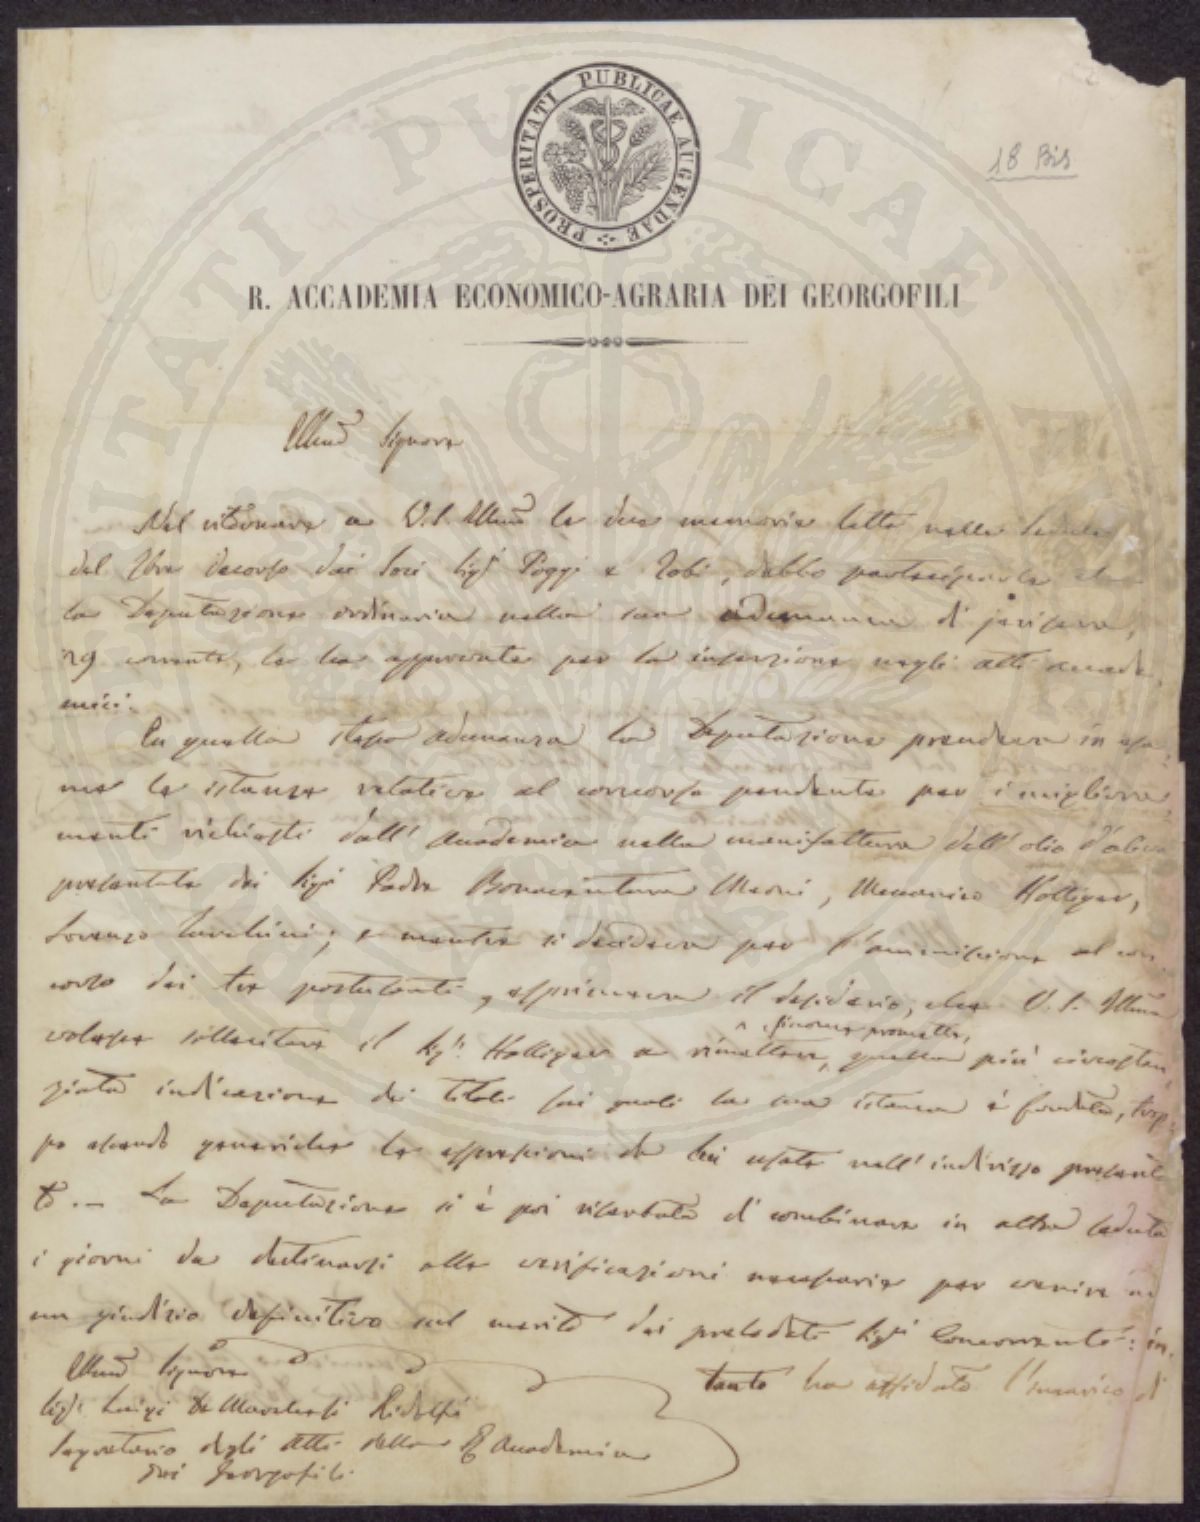 PROSPERITATI PUBLICAE AUGENDAE
18 Bis
R. ACCADEMIA ECONOMICO-AGRARIA DEI GEORGOFILI
Illmo Signore
Nel ritornare a V.S. Illma le due memorie lette nella Seduta
del Xbre decorso dai Soci Sigri Poggi e Zobi, debbo parteciparle che
la Deputazione ordinaria nella sua adunanza di jerisera,
29 corrente, le ha approvate per la inserzione negli atti accade
mici.
In quella stessa adunanza la Deputazione prendeva in esa
me le istanze relative al concorso pendente per i migliora
menti richiesti dall' Accademia nella manifattura dell' olio d'oliva
presentate dai Sigri Padre Bonaventura Meoni, Meccanico Holliger,
Lorenzo ; e mentre si decideva per l'ammissione al con
corso dei tre postulanti, esprimeva il desiderio, che V.S. Illma
volesse sollecitare il Sigr. Holliger a rimettere, siccome promette, quella più circostan
ziata indicazione dei titoli sui quali la sua istanza è fondata, trop
po essendo generiche le espressioni da lui usate nell' indirizzo presenta
to. — La Deputazione si è poi riserbata di combinare in altra seduta
i giorni da destinarsi alle verificazioni necessarie per venire a
un giudizio definitivo sul merito dei prelodati Sigri Concorrenti: in
tanto ha affidato l'incarico di
Illmo Signore
Sigr Luigi De Marchesi Ridolfi
Segretario degli Atti della R. Accademia
dei Georgofili